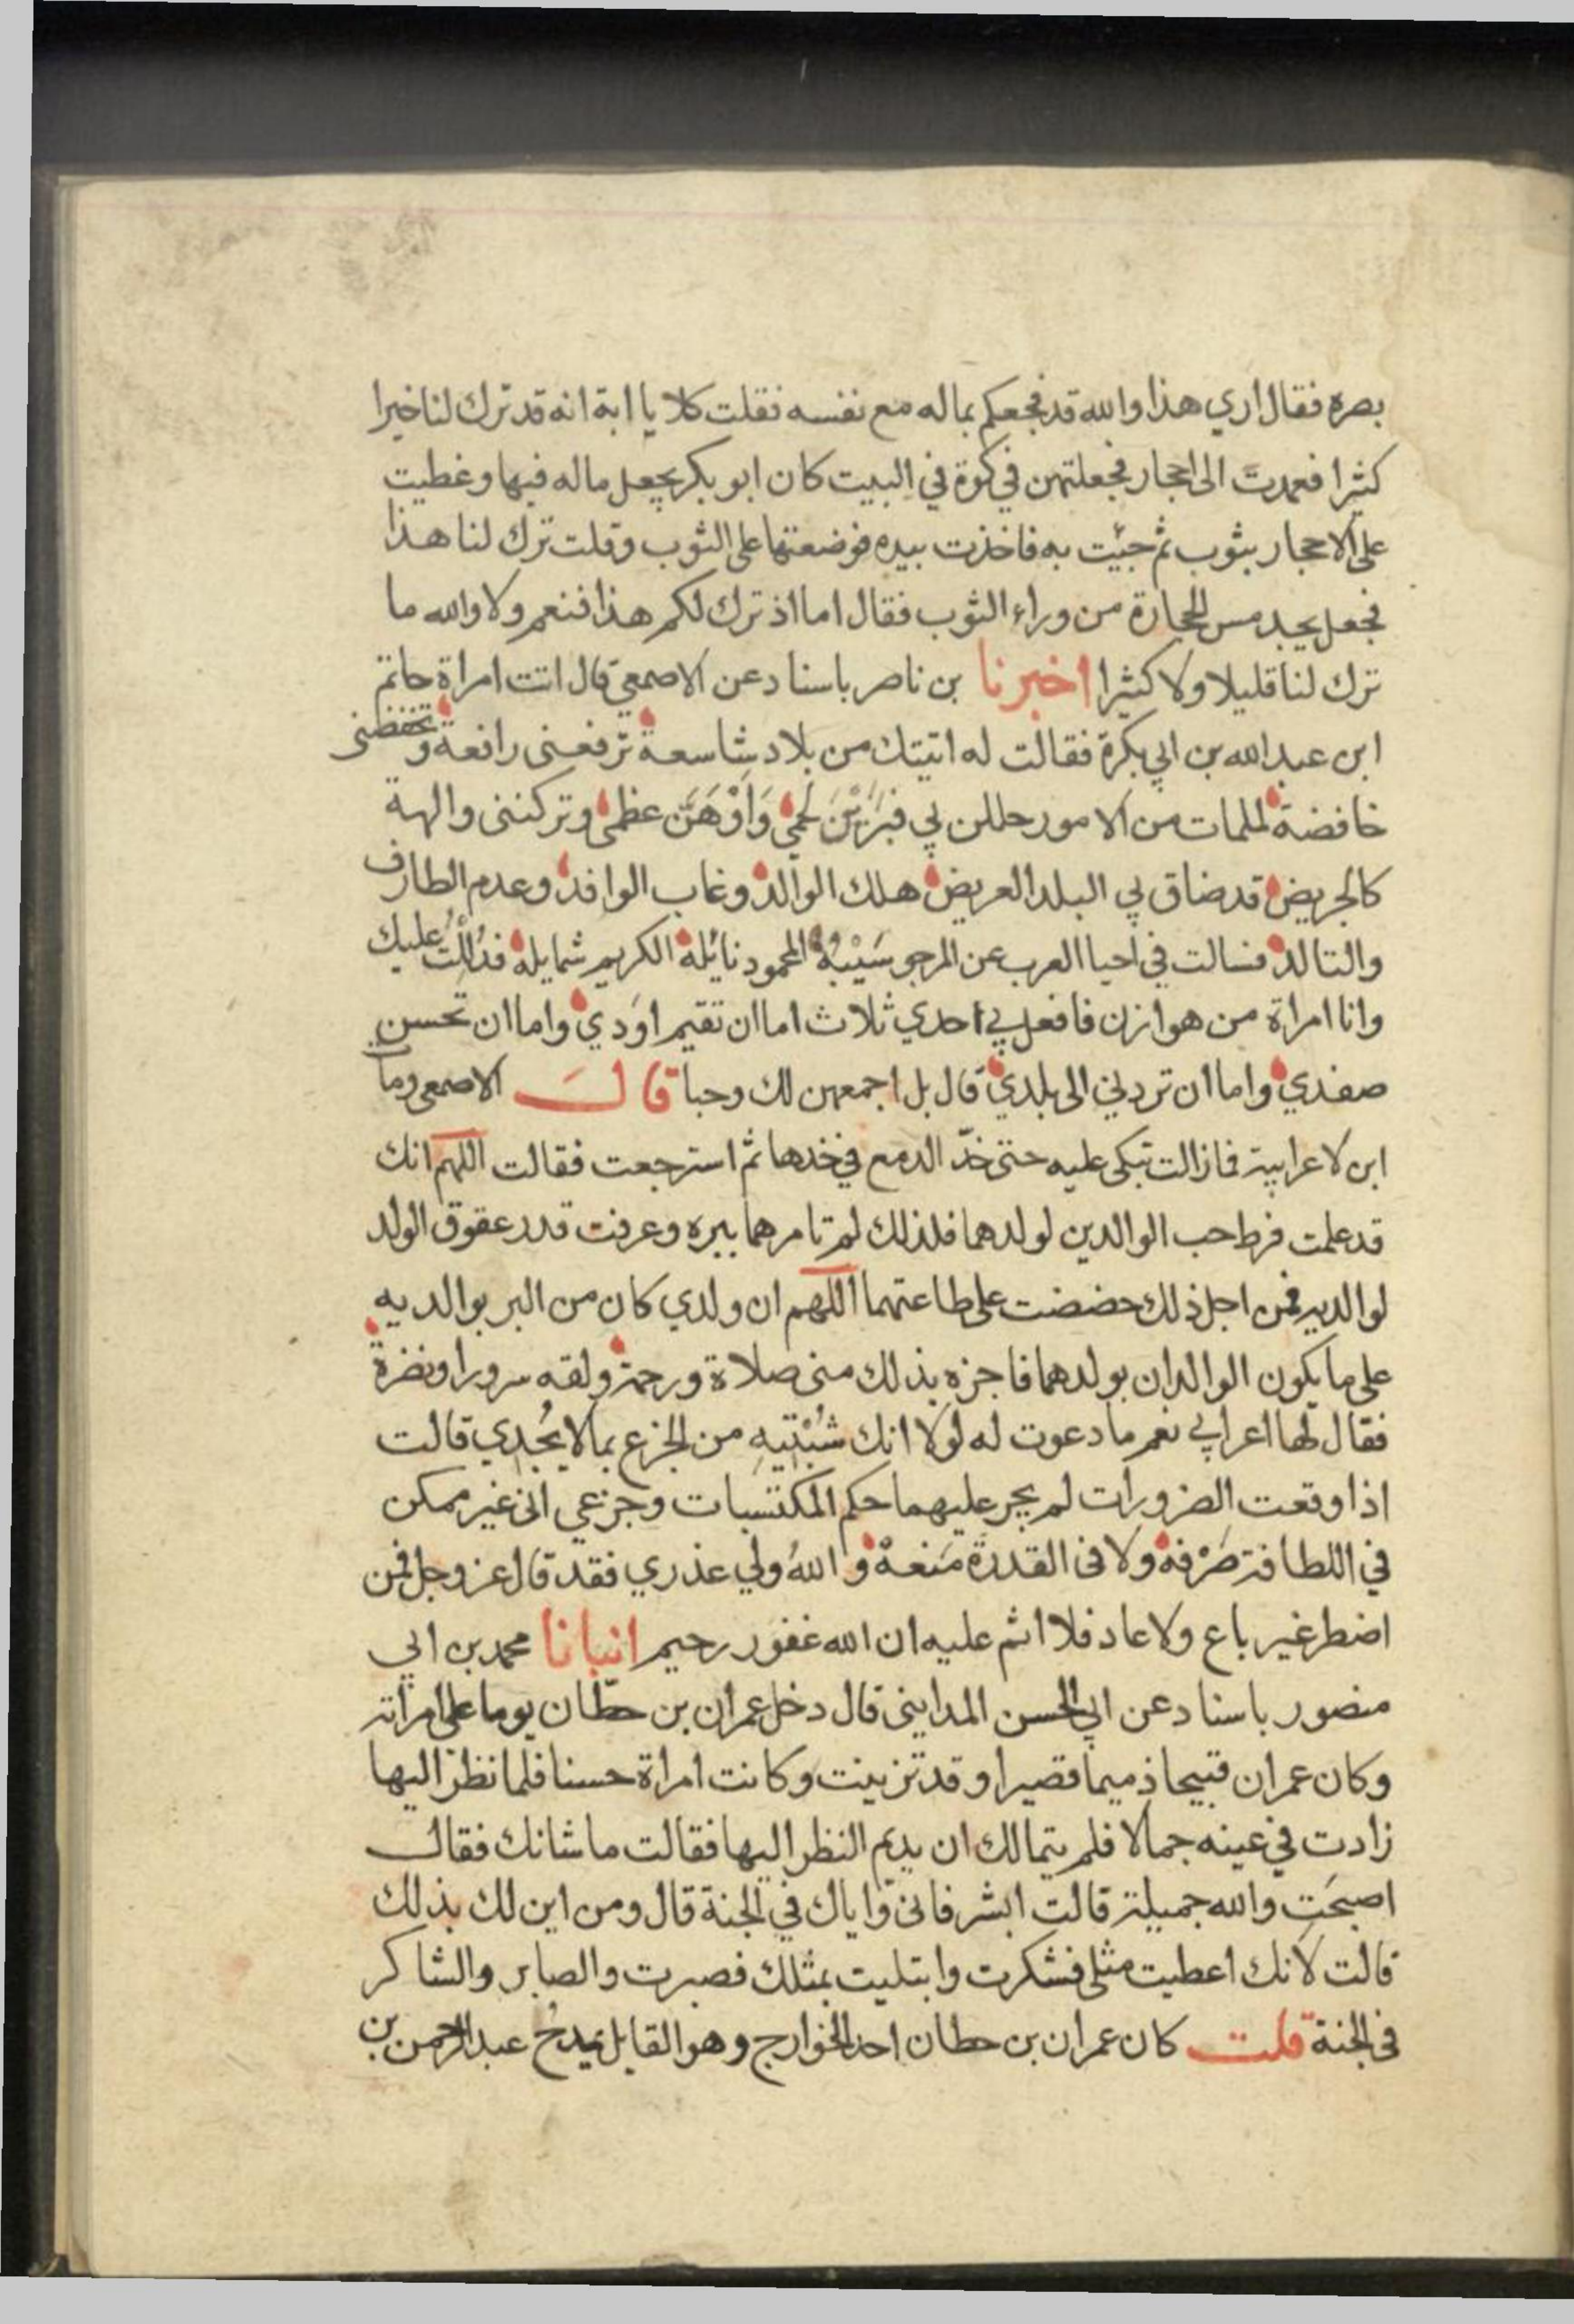 بصره فقال اري هذا والله قد فجعكم بماله مع نفسه فقلت كلا يا ابة انه قد ترك لنا خيرا
كثيرا فعمدت الى احجار فجعلتهن في كوة في البيت كان ابو بكر يجعل ماله فيها وغطيت
على الاحجار بثوب ثم جيت به فاخذت بيده فوضعتها على الثوب وقلت ترك لنا هذا
فجعل يجد مس الحجارة من وراء الثوب فقال اما اذ ترك لكم هذا فنعم ولا والله ما
ترك لنا قليلا ولا كثيرا اخبرنا بن ناصر باسناد عن الاصمعي قال اتت امراة حاتم
ابن عبد الله بن ابي بكرة فقالت له اتيتك من بلاد شاسعة ترفعنى رافعة وتخفضنى
خافضة لملمات من الامور حللن بي فبَرَيْنَ لحمي وَاَوْهَنَّ عظمى وتركننى والهة
كالجريض قد ضاق بي البلد العريض هلك الوالد وغاب الوافد وعدم الطارف
والتالد فسالت في احيا العرب عن المرجو سَيْبُهُ المحمود نائله الكريم شمايله فدُلِلْتُ عليك
وانا امراة من هوازن فافعل بي احدي ثلاث اما ان تقيم اوَدي واما ان تحسن
صفدي واما ان تردني الى بلدي قال بل اجمعهن لك وحبا قالَ الاصمعى ومات
ابن لاعرابية فمازالت تبكى عليه حتى خدّ الدمع في خدها ثم استرجعت فقالت اللهم انك
قد علمت فرط حب الوالدين لولدهما فلذلك لم تامرهما ببره وعرفت قدر عقوق الولد
لوالديه فمن اجل ذلك حضضت على طاعتهما اللهم ان ولدي كان من البر بوالديه
على ما يكون الوالدان بولدهما فاجزه بذلك منى صلاة ورحمة ولقه سرورا ونضرة
فقال لها اعرابي نعم ما دعوت له لولا انك شُبْتِيهِ من الجزع بما لا يُجْدِي قالت
اذا وقعت الضرورات لم يجر عليهما حكم المكتسبات وجزعي الى غير ممكن
في اللطافة صَرْفه ولا فى القدرة مَنعهْ واللهُ ولي عذري فقد قال عز وجل فمن
اضطر غير باغ ولا عاد فلا اثم عليه ان الله غفور رحيم انبانا محمد بن ابي
منصور باسناد عن ابي الحسن المداينى قال دخل عمران بن حطّان يوما على امراته
وكان عمران قبيحا ذميما قصيرا وقد تزينت وكانت امراة حسنا فلما نظر اليها
زادت في عينه جمالا فلم يتمالك ان يديم النظر اليها فقالت ما شانك فقال
اصبحَتِ والله جميلة قالت ابشر فانى واياك في الجنة قال ومن اين لك بذلك
قالت لانك اعطيت مثلى فشكرت وابتليت بمثلك فصبرت والصابر والشاكر
فى الجنة قلت كان عمران بن حطان احد الخوارج وهو القايل يمدحُ عبد الرحمن بن